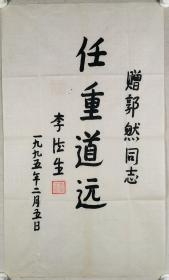 赠郭然同志
任重道远
李德生
一九九五年二月五日